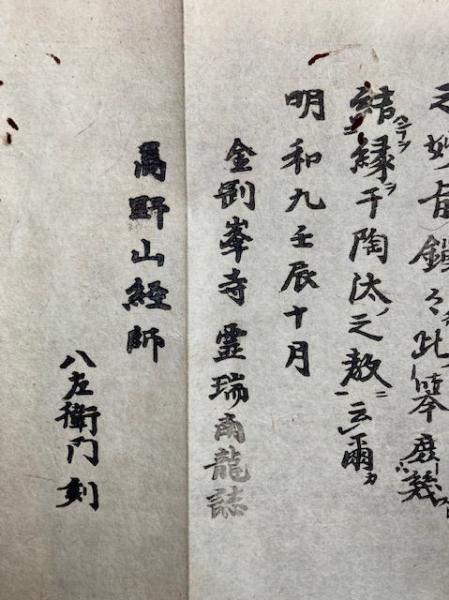 之妙旨鎮々此庶幾
結縁ヲ于陶汰ノ之教ニ云爾カ
明和九壬辰十月
金剛峯寺 霊瑞南龍誌
高野山経師
八左衛門刻